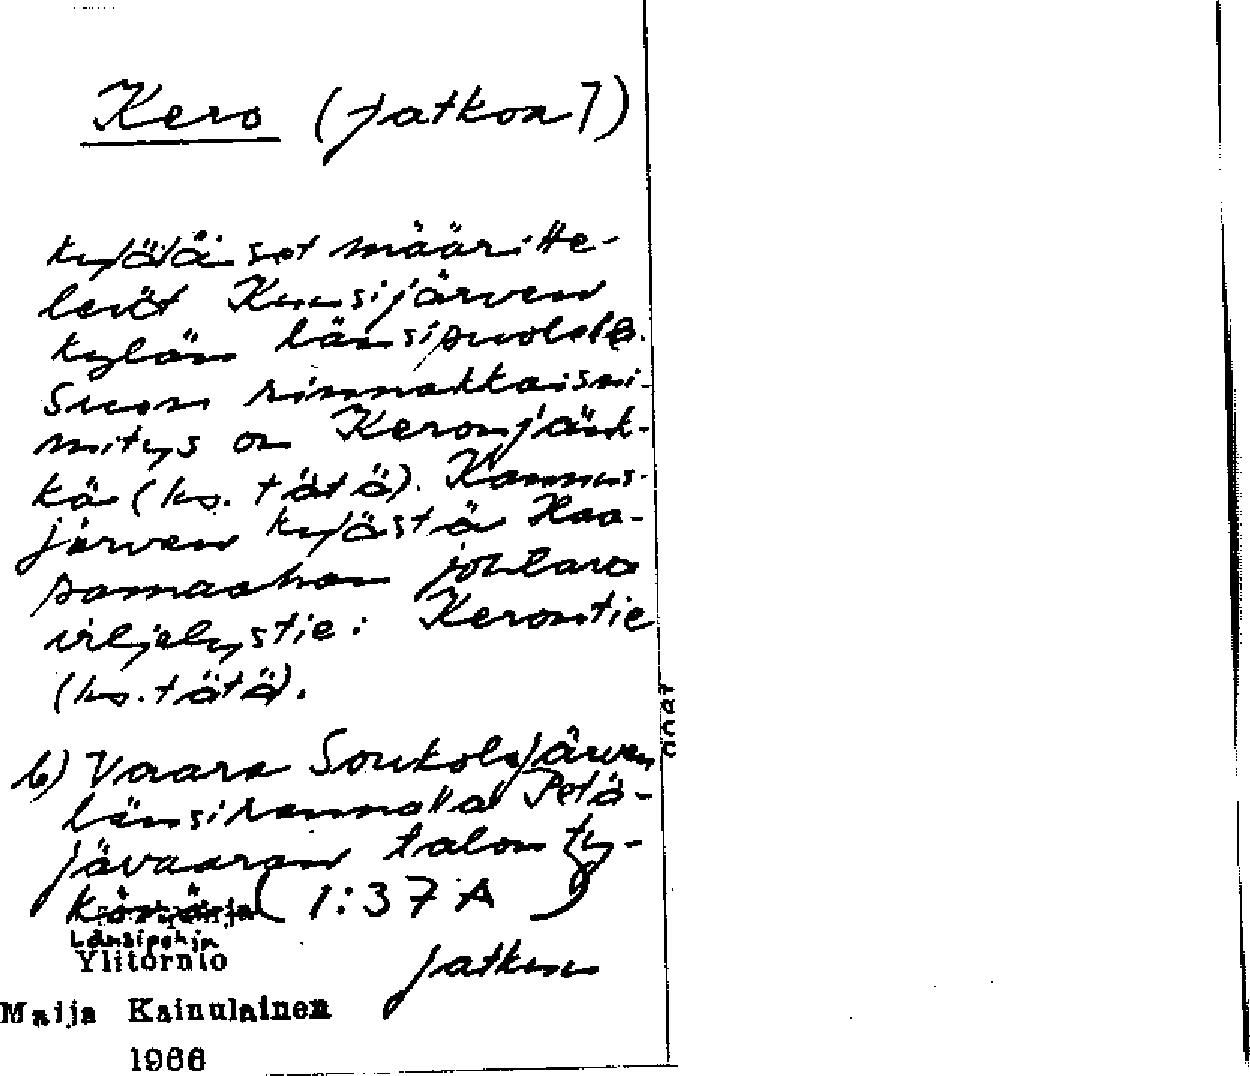 Kero (jatkoa 7)
kyläläiset määritte-
levät Kuusijärven
kylän länsipuolelle.
Suon rinnakkaisni-
mitys on Keronjänk-
kä (ks. tätä). Kannus-
järven kylästä Haa-
pamaahan johtava
viljelystie: Kerontie
(ks. tätä).
b) Vaara Soukolojärven
länsirannalla Petä-
jävaaran talon ty-
könä (1:37 A)
Länsipohja
Ylitornio
jatkuu
Maija Kainulainen
1966